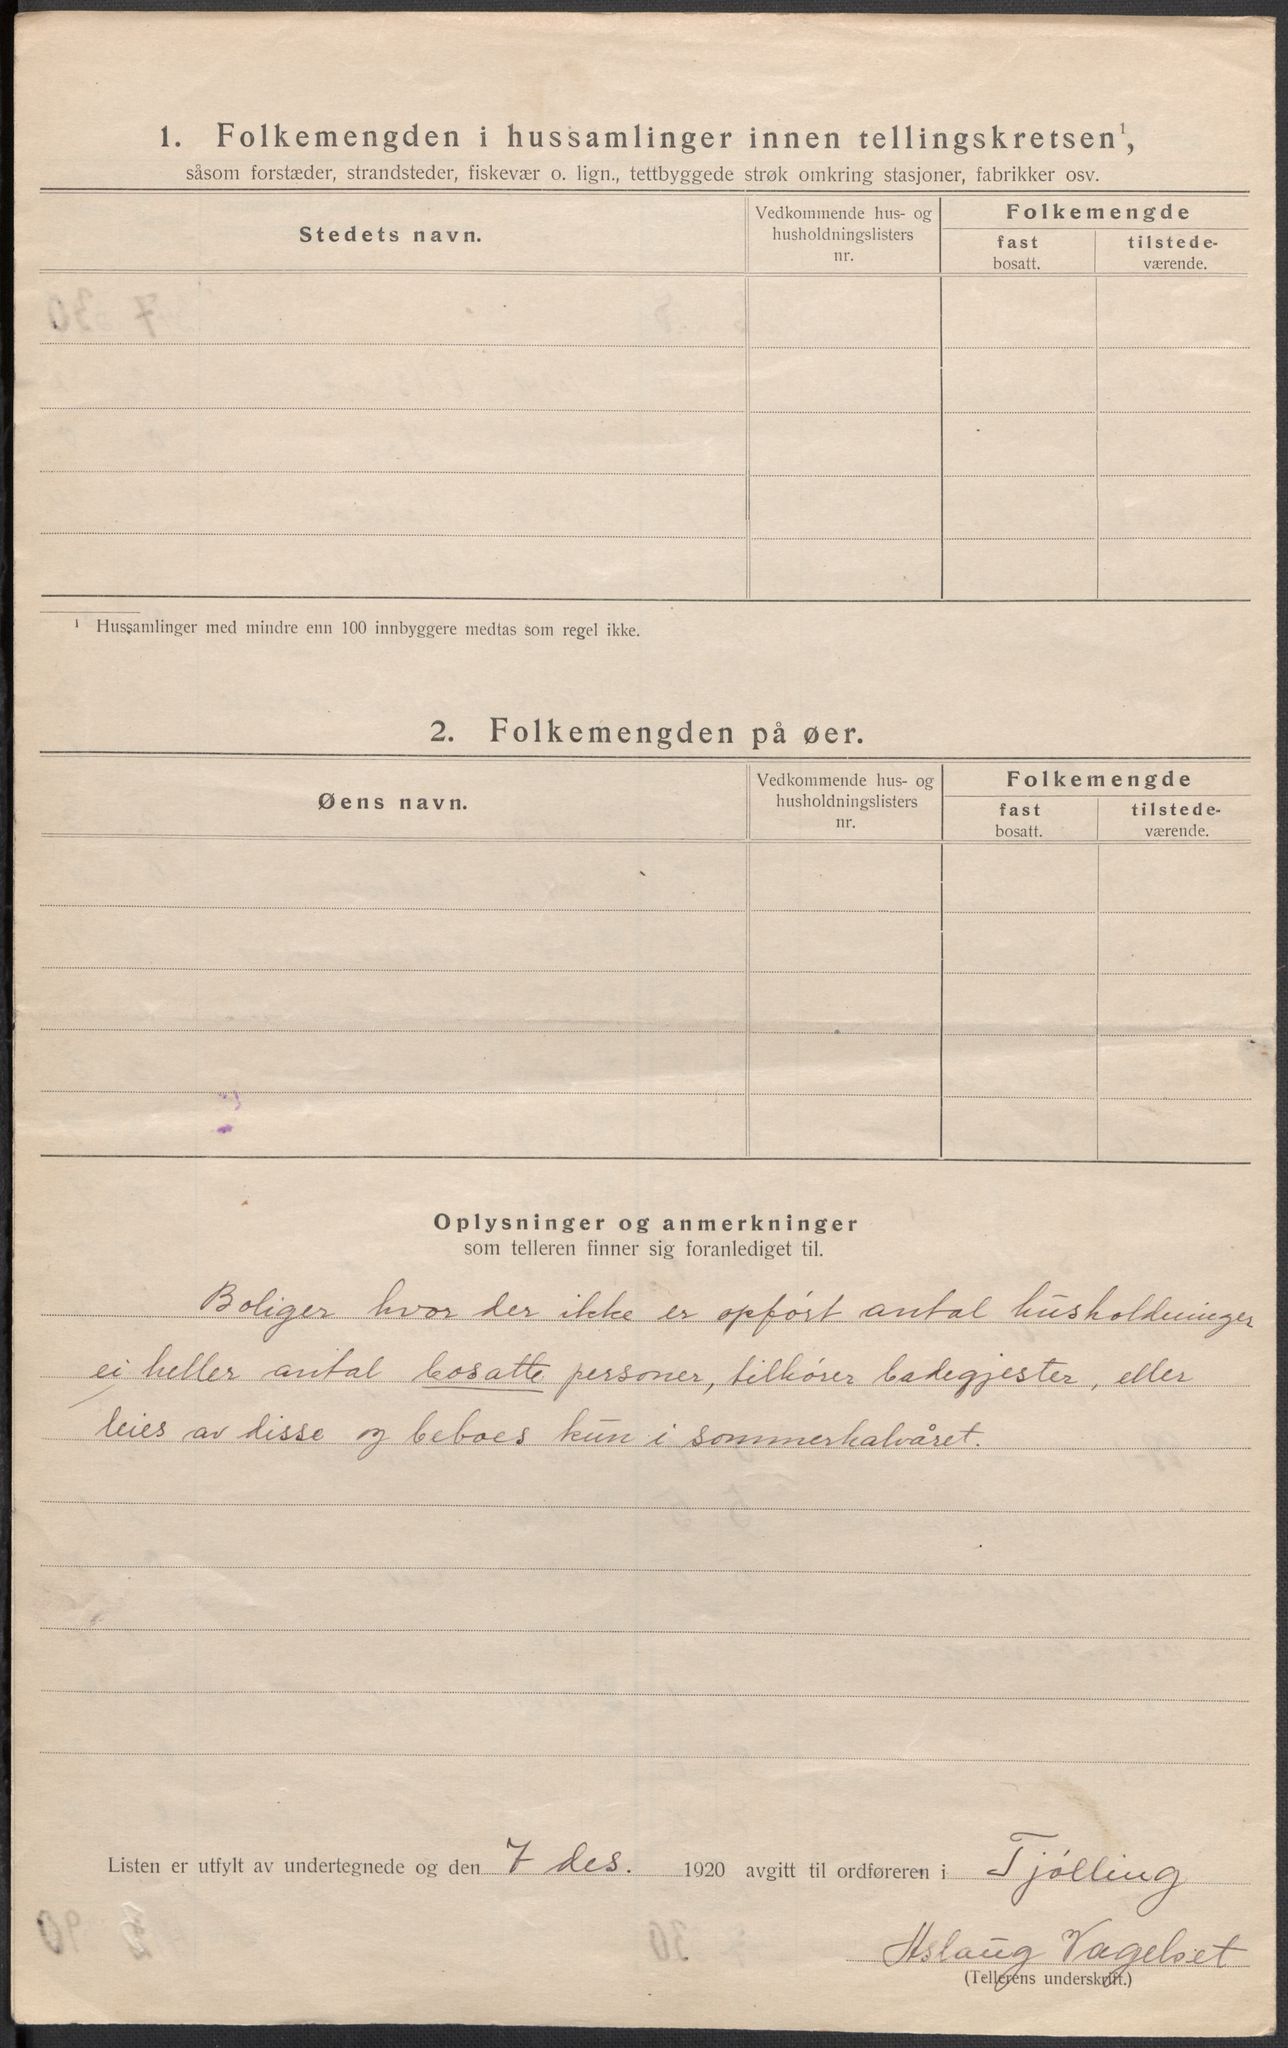 1. Folkemengden i hussamlinger innen tellingskretsen¹,
såsom forstæder, strandsteder, fiskevær o. lign., tettbyggede strøk omkring stasjoner, fabrikker osv.
Stedets navn.
Vedkommende hus- og
husholdningslisters
nr.
Folkemengde
fast
bosatt.
tilstede-
værende.
¹ Hussamlinger med mindre enn 100 innbyggere medtas som regel ikke.
2. Folkemengden på øer.
Øens navn.
Vedkommende hus- og
husholdningslisters
nr.
Folkemengde
fast
bosatt.
tilstede-
værende.
Oplysninger og anmerkninger
som telleren finner sig foranlediget til.
Boliger hvor der ikke er opført antal husholdninger
ei heller antal bosatte personer, tilhører badegjester, eller
leies av disse og beboes kun i sommerhalvåret.
Listen er utfylt av undertegnede og den 7 des. 1920 avgitt til ordføreren i Tjølling
Aslaug
(Tellerens underskrift.)